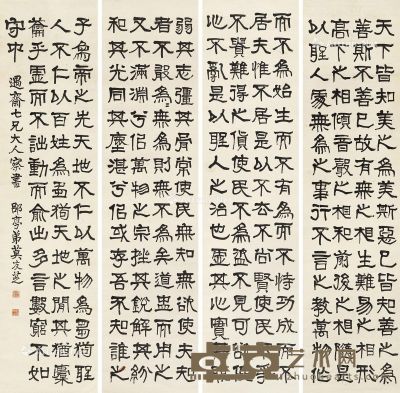 天下皆知美之為美斯惡已皆知善之為
善斯不善已故有無之相生難易之相形
高下之相傾音聲之相和前後之相隨是
以聖人處無為之事行不言之教萬物作
而不為始生而不有為而不恃功成而不
居夫惟不居是以不去不尚賢使民不爭
不貴難得之貨使民不為盜不見可欲使
心不亂是以聖人之治也虛其心實其腹
弱其志彊其骨常使民無知無欲使夫知
者不敢為無為則無不為矣道盅而用之
又不滿淵兮佀萬物之宗挫其銳解其紛
和其光同其塵湛兮佀或存吾不知誰之
子為帝之先天地不仁以萬物為芻狗聖
人不仁以百姓為芻狗天地之間其猶橐
籥乎虛而不詘動而俞出多言數窮不如
守中 遇齋七兄大人察書 郘亭弟莫友芝
艺术网